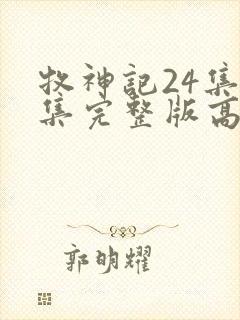 牧神记24集
集完整版高
郭明耀